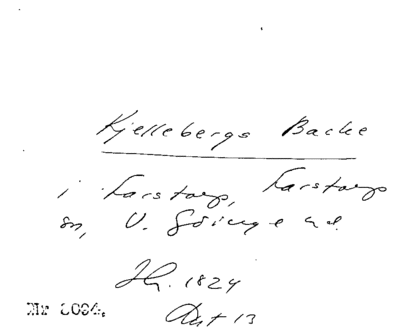 Kjellebergs Backe
i Farstorp, Farstorp
sn, V. Göinge hd.
1824
13
Nr